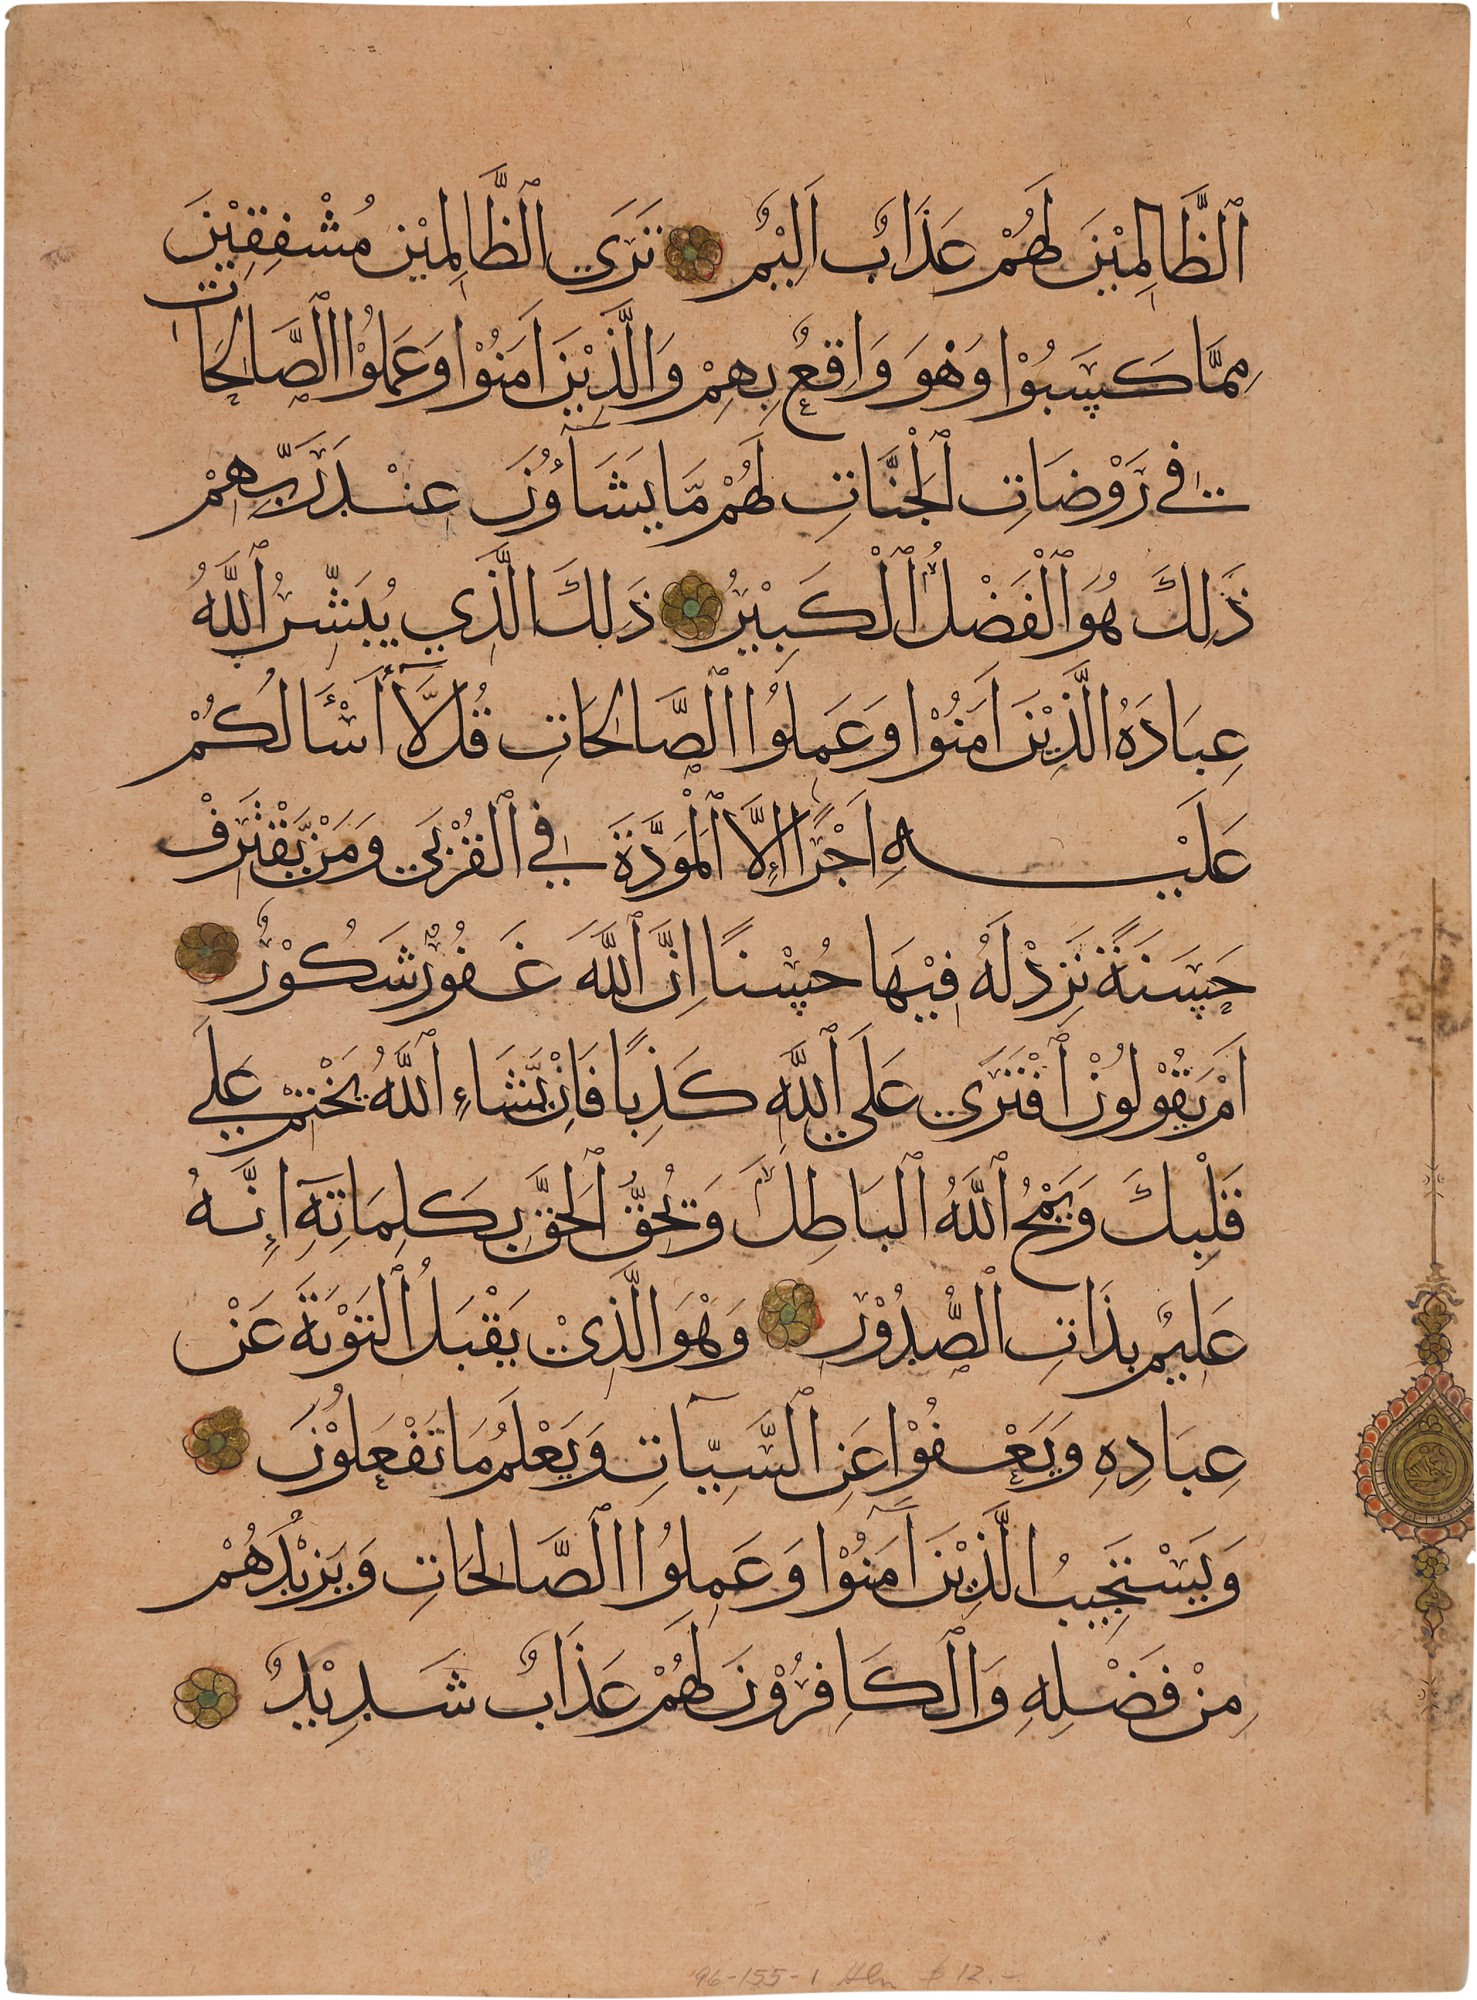 ٱلظَّالِمِيْنَ لَهُمْ عَذَابٌ اَلِيْمٌ تَرَى الظَّالِمِيْنَ مُشْفِقِيْنَ
مِمَّا كَسَبُوْا وَهُوَ وَاقِعٌ بِهِمْ وَالَّذِيْنَ اٰمَنُوْا وَعَمِلُوْا ٱلصَّالِحَاتِ
فِي رَوْضَاتِ ٱلْجَنَّاتِ لَهُمْ مَّا يَشَآؤُنَ عِنْدَ رَبِّهِمْ
ذَلِكَ هُوَ ٱلْفَضْلُ ٱلْكَبِيْرُ ذَلِكَ الَّذِي يُبَشِّرُ ٱللَّهُ
عِبَادَهُ الَّذِيْنَ اَمَنُوْا وَعَمِلُوا ٱلصَّالِحَاتِ قُل لَّآ أَسْأَلُكُمْ
عَلَيْهِ اَجْرًا اِلَّا ٱلْمَوَدَّةَ فِي ٱلْقُرْبَى وَمَنْ يَّقْتَرِفْ
حَسَنَةً نَزِدْ لَهُ فِيْهَا حُسْنًا اِنَّ ٱللَّهَ غَفُوْرٌ شَكُوْرٌ
اَمْ يَقُوْلُوْنَ ٱفْتَرَى عَلَى ٱللَّهِ كَذِبًا فَاِنْ يَّشَاءِ ٱللَّهُ يَخْتِمْ عَلَى
قَلْبِكَ وَيَمْحُ ٱللَّهُ ٱلْبَاطِلَ وَيُحِقُّ ٱلْحَقَّ بِكَلِمَاتِهِٓ اِنَّهُ
عَلِيْمٌ بِذَاتِ ٱلصُّدُوْرِ وَهُوَ الَّذِيْ يَقْبَلُ ٱلتَّوْبَةَ عَنْ
عِبَادِهِ وَيَعْفُوْا عَنِ ٱلسَّيِّآتِ وَيَعْلَمُ مَا تَفْعَلُوْنَ
وَيَسْتَجِيْبُ الَّذِيْنَ آمَنُوْا وَعَمِلُوا ٱلصَّالِحَاتِ وَيَزِيْدُهُمْ
مِنْ فَضْلِهِ وَٱلْكَافِرُوْنَ لَهُمْ عَذَابٌ شَدِيْدٌ
96-155-1 $12.-